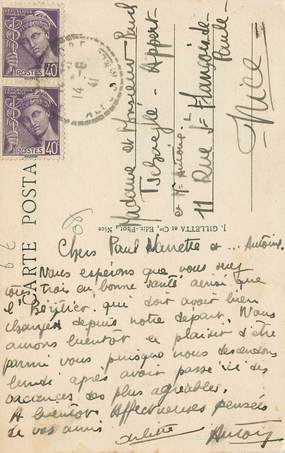 40
POSTES
40
POSTES
14-8
41
CARTE POSTALE
J. GILLETTA et Cie, Edit-Phot, Nice
Madame et Monsieur Paul
Appart
et Mr Antoine
11 Rue St François de
Paule
Nice
Chers Paul Ninette et ... Antoine.
Nous espérons que vous êtes
tous trois en bonne santé ainsi que
l' qui doit avoir bien
changer depuis notre départ. Nous
aurons bientôt le plaisir d'être
parmi vous puisque nous descendons
lundi après avoir passé ici des
vacances des plus agréables.
A bientôt Affectueuses pensées
de vos amis Juliette